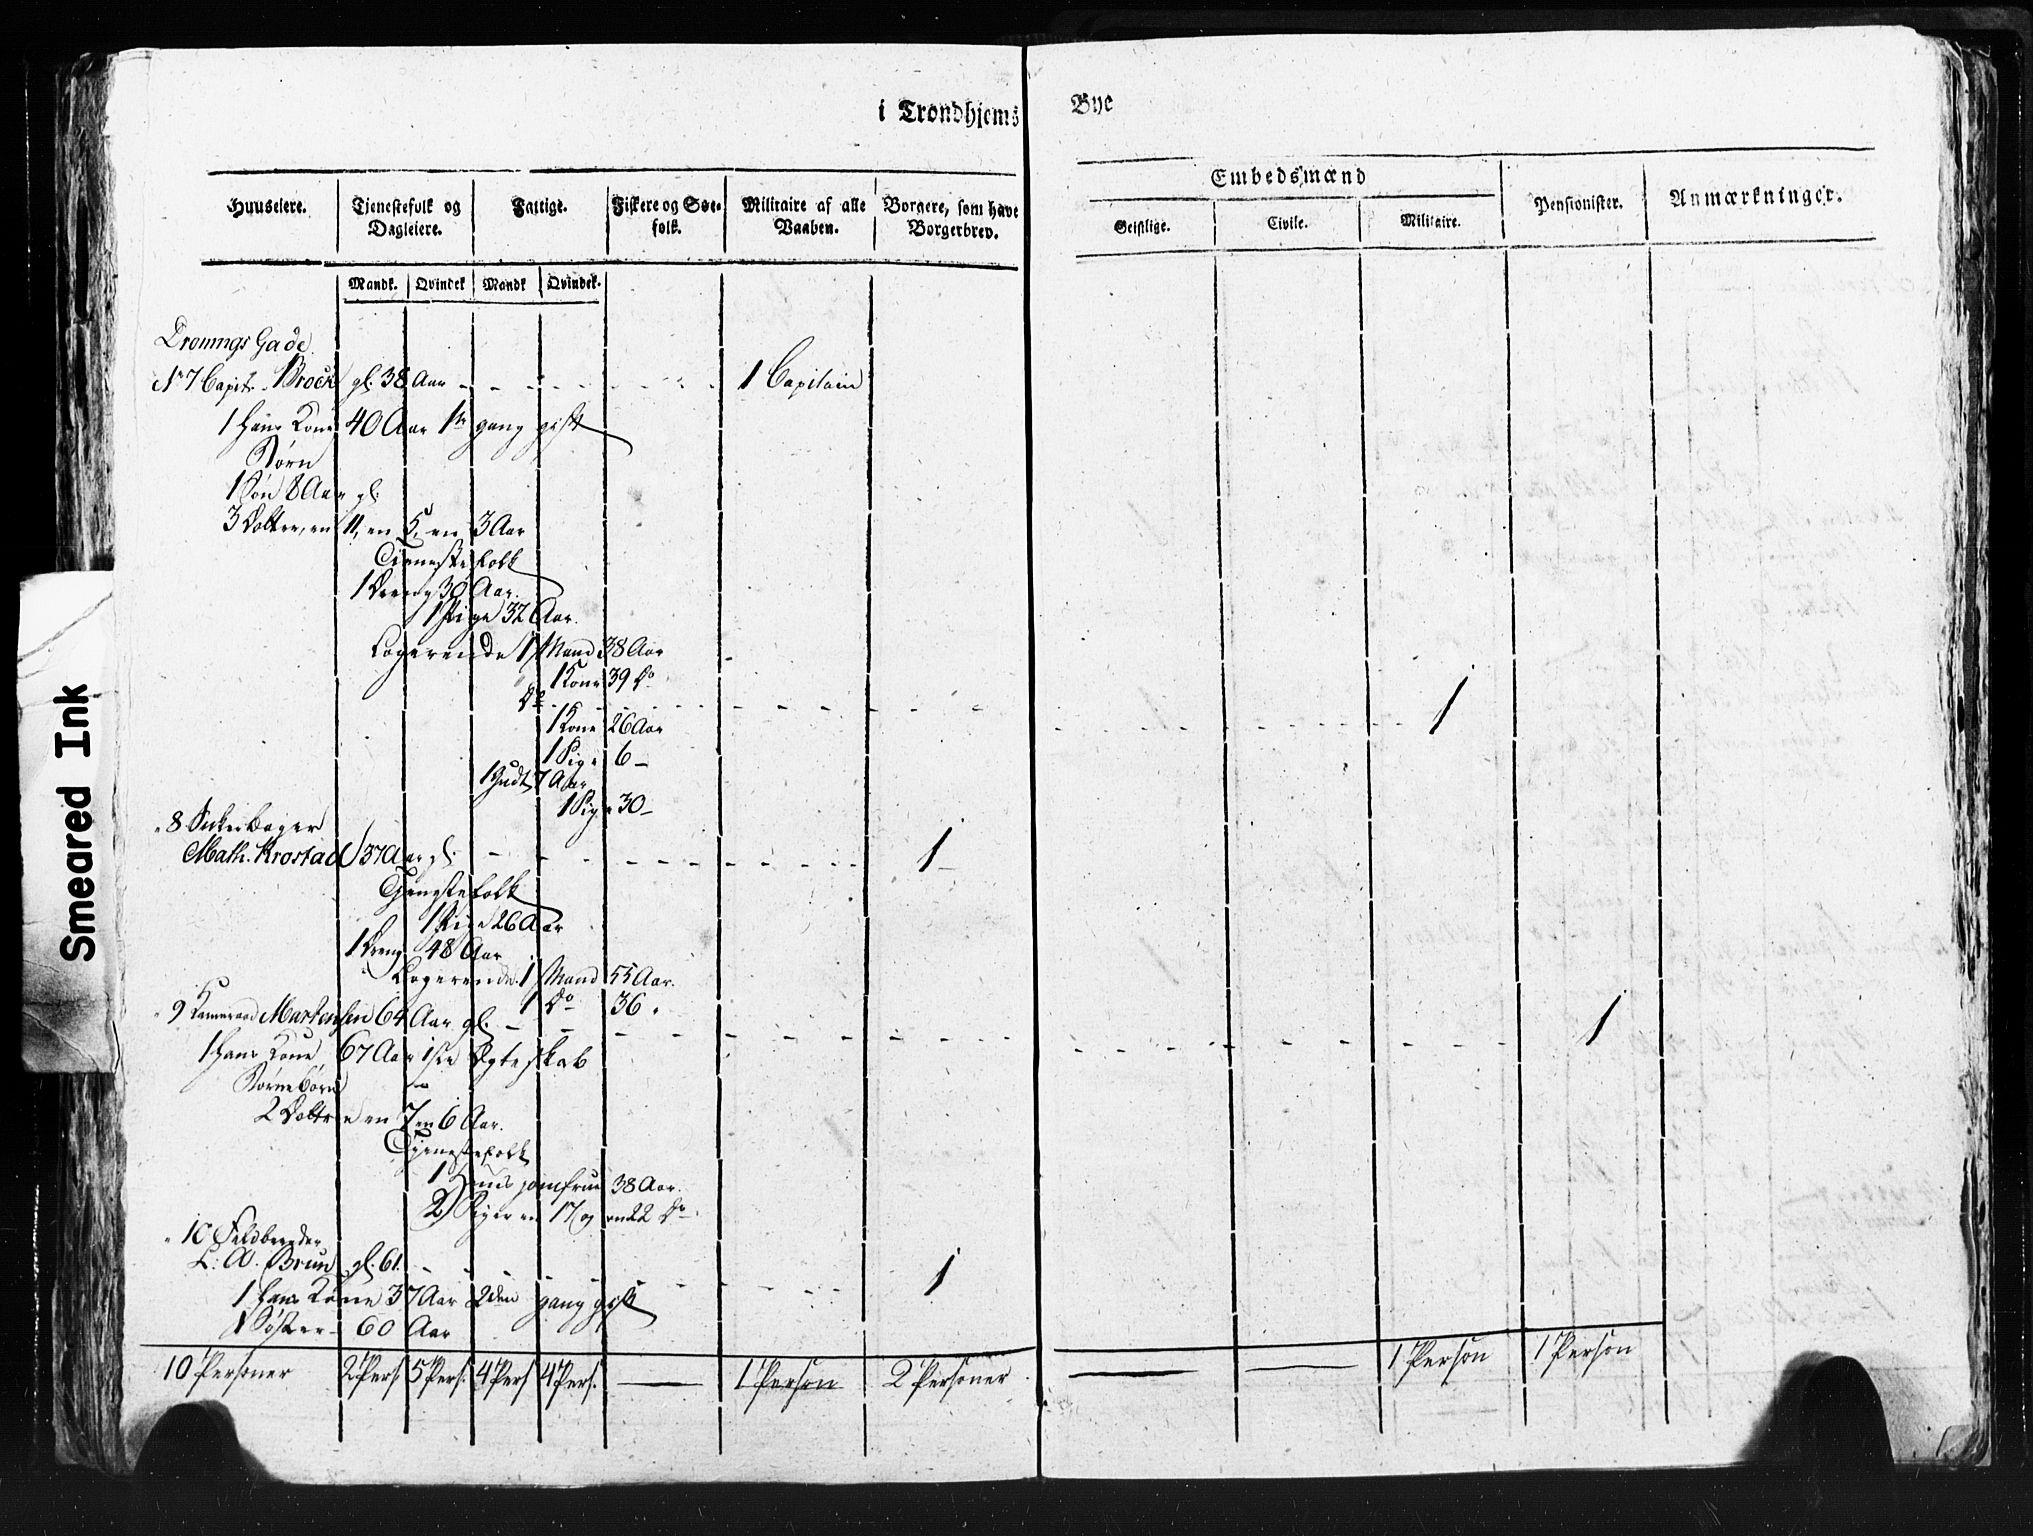 i Trondhjems Bye
Huuseiere.
Tjenestefolk og Dagleiere.
Fattige.
Fiskere og Søefolk.
Militaire af alle Vaaben.
Borgere, som have Borgerbrev.
Embedsmænd
Geistlige.
Civile.
Militaire.
Pensionister.
Anmærkninger.
Mandk. Qvindek Mandk Qvindek.
Dronnngs Gade
No 7 Capit. Brock gl. 38 Aar 1 Capitain
1 Hans Kone 40 Aar 1te gang gift
Børn
1 Søn 8 Aar gl.
3 Døttre, en 11, en 5, en 3 Aar
Tienestefolk
1 Dreng 30 Aar.
1 Pige 32 Aar.
Logerende 1 Mand 38 Aar
1 Kone 39 Do
Do 1
1 Kone 26 Aar
1 Pige 6 —
1 Gudt 7 Aar
1 Pige 30 —
" 8 Sukerbager
Math. Krostad 37 Aar gl. 1
Tjenestefolk
1 Pige 26 Aar
1 Dreng 48 Aar
Logerende 1 Mand 55 Aar.
1 Do 36 "
" 9 Kammeraad Martensen 64 Aar gl. 1
1 Hans Kone 67 Aar 1ste Ægteskab
Børnebørn
2 Døttre en 7 en 6 Aar.
Tjenestefolk
1 Huus jomfrue 38 Aar.
2 Piger en 17 og en 22 Do
" 10 Feldbereder
L: A. Brun gl. 61. 1
1 Hans Kone 37 Aar 2den gang gift
1 Søster 60 Aar
10 Personer 2 Pers. 5 Pers. 4 Pers 4 Pers. — 1 Person 2 Personer — — 1 Person 1 Person
Smeared Ink